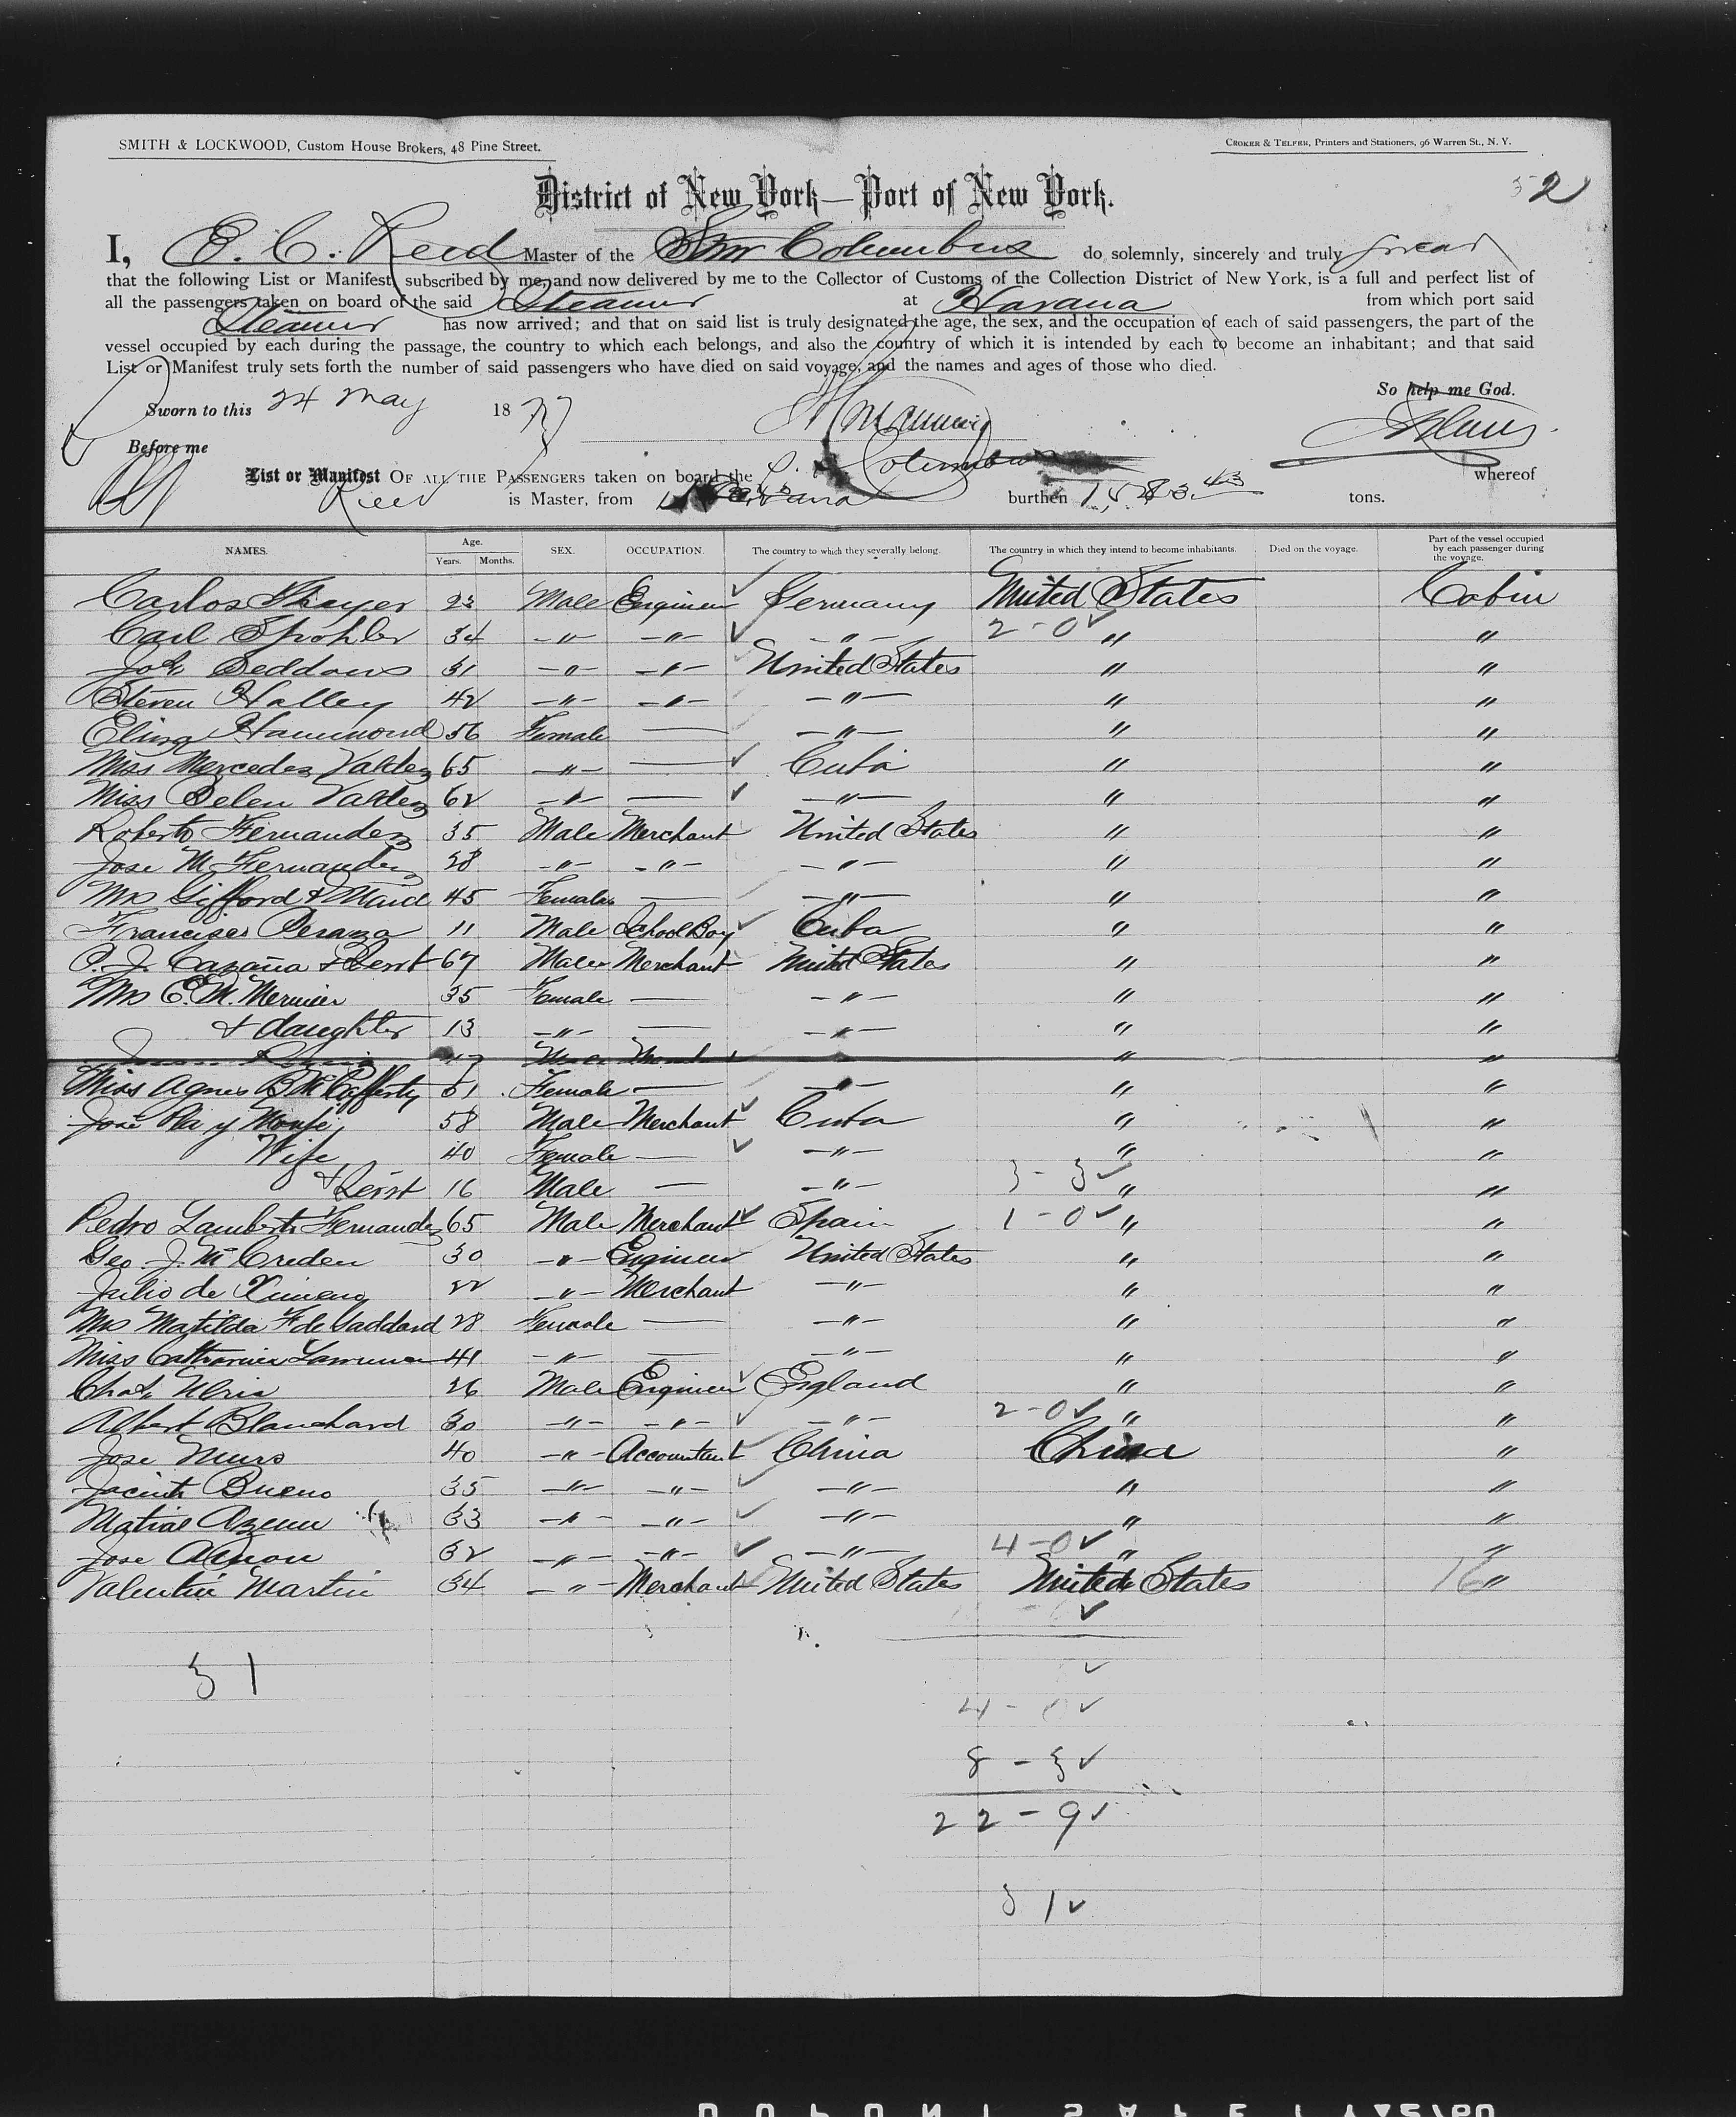 SMITH & LOCKWOOD, Custom House Brokers, 48 Pine Street.
CROKER & TELFER, Printers and Stationers, 96 Warren St., N. Y.
2
District of New York—Port of New York.
I, E. C. Reed Master of the Str Columbus do solemnly, sincerely and truly swear
that the following List or Manifest, subscribed by me, and now delivered by me to the Collector of Customs of the Collection District of New York, is a full and perfect list of
all the passengers taken on board of the said Steamer at Havana from which port said
Steamer has now arrived; and that on said list is truly designated the age, the sex, and the occupation of each of said passengers, the part of the
vessel occupied by each during the passage, the country to which each belongs, and also the country of which it is intended by each to become an inhabitant; and that said
List or Manifest truly sets forth the number of said passengers who have died on said voyage, and the names and ages of those who died.
So help me God.
Sworn to this 24 May 1877
Before me
List or Manifest OF ALL THE PASSENGERS taken on board the S. S. Columbus whereof
Reed is Master, from Havana burthen 1,583.43 tons.
NAMES. Age. Years. Months. SEX. OCCUPATION. The country to which they severally belong. The country in which they intend to become inhabitants. Died on the voyage. Part of the vessel occupied by each passenger during the voyage.
Carlos Thayer 23 Male Engineer Germany United States Cabin
Carl Spohler 34 —"— —"— —"— 2-0 " "
Jos Seddons 31 —"— —"— United States " "
Steven Halley 42 —"— —"— —"— " "
Eliza Hammond 56 Female — —"— " "
Miss Mercedes Valdez 65 —"— — Cuba " "
Miss Belen Valdez 62 —"— — —"— " "
Roberto Fernandez 35 Male Merchant United States " "
Jose M. Fernandez 28 —"— —"— —"— " "
Mrs Gifford & Maid 45 Females — —"— " "
Francisco Peraza 11 Male School Boy Cuba " "
P. J. Cazaña & Servt 67 Males Merchant United States " "
Mrs C. M. Mernier 35 Female — —"— " "
& daughter 13 —"— — —"— " "
Miss Agnes B McCafferty 51 Female — —"— " "
José Pla y Monje 58 Male Merchant Cuba " "
Wife 40 Female — —"— " "
& Servt 16 Male — —"— 3-3 " "
Pedro Lamberto Fernandez 65 Male Merchant Spain 1-0 " "
Geo. J. McCreden 30 —"— Engineer United States " "
Julio de Ximeno 22 —"— Merchant —"— " "
Mrs Matilda F de Gaddard 28 Female — —"— " "
Miss Catharine Lawrence 41 —"— — —"— " "
Chas Uhrie 26 Male Engineer England " "
Albert Blanchard 30 —"— —"— —"— 2-0 " "
Jose Muro 40 —"— Accountant China China "
Jacinto Bueno 35 —"— —"— —"— " "
Matias Azeuu 33 —"— —"— —"— " "
Jose Alinon 32 —"— —"— —"— 4-0 " "
Valentin Martin 34 —"— Merchant United States United States 16 "
31
4-0
8-3
22-9
31